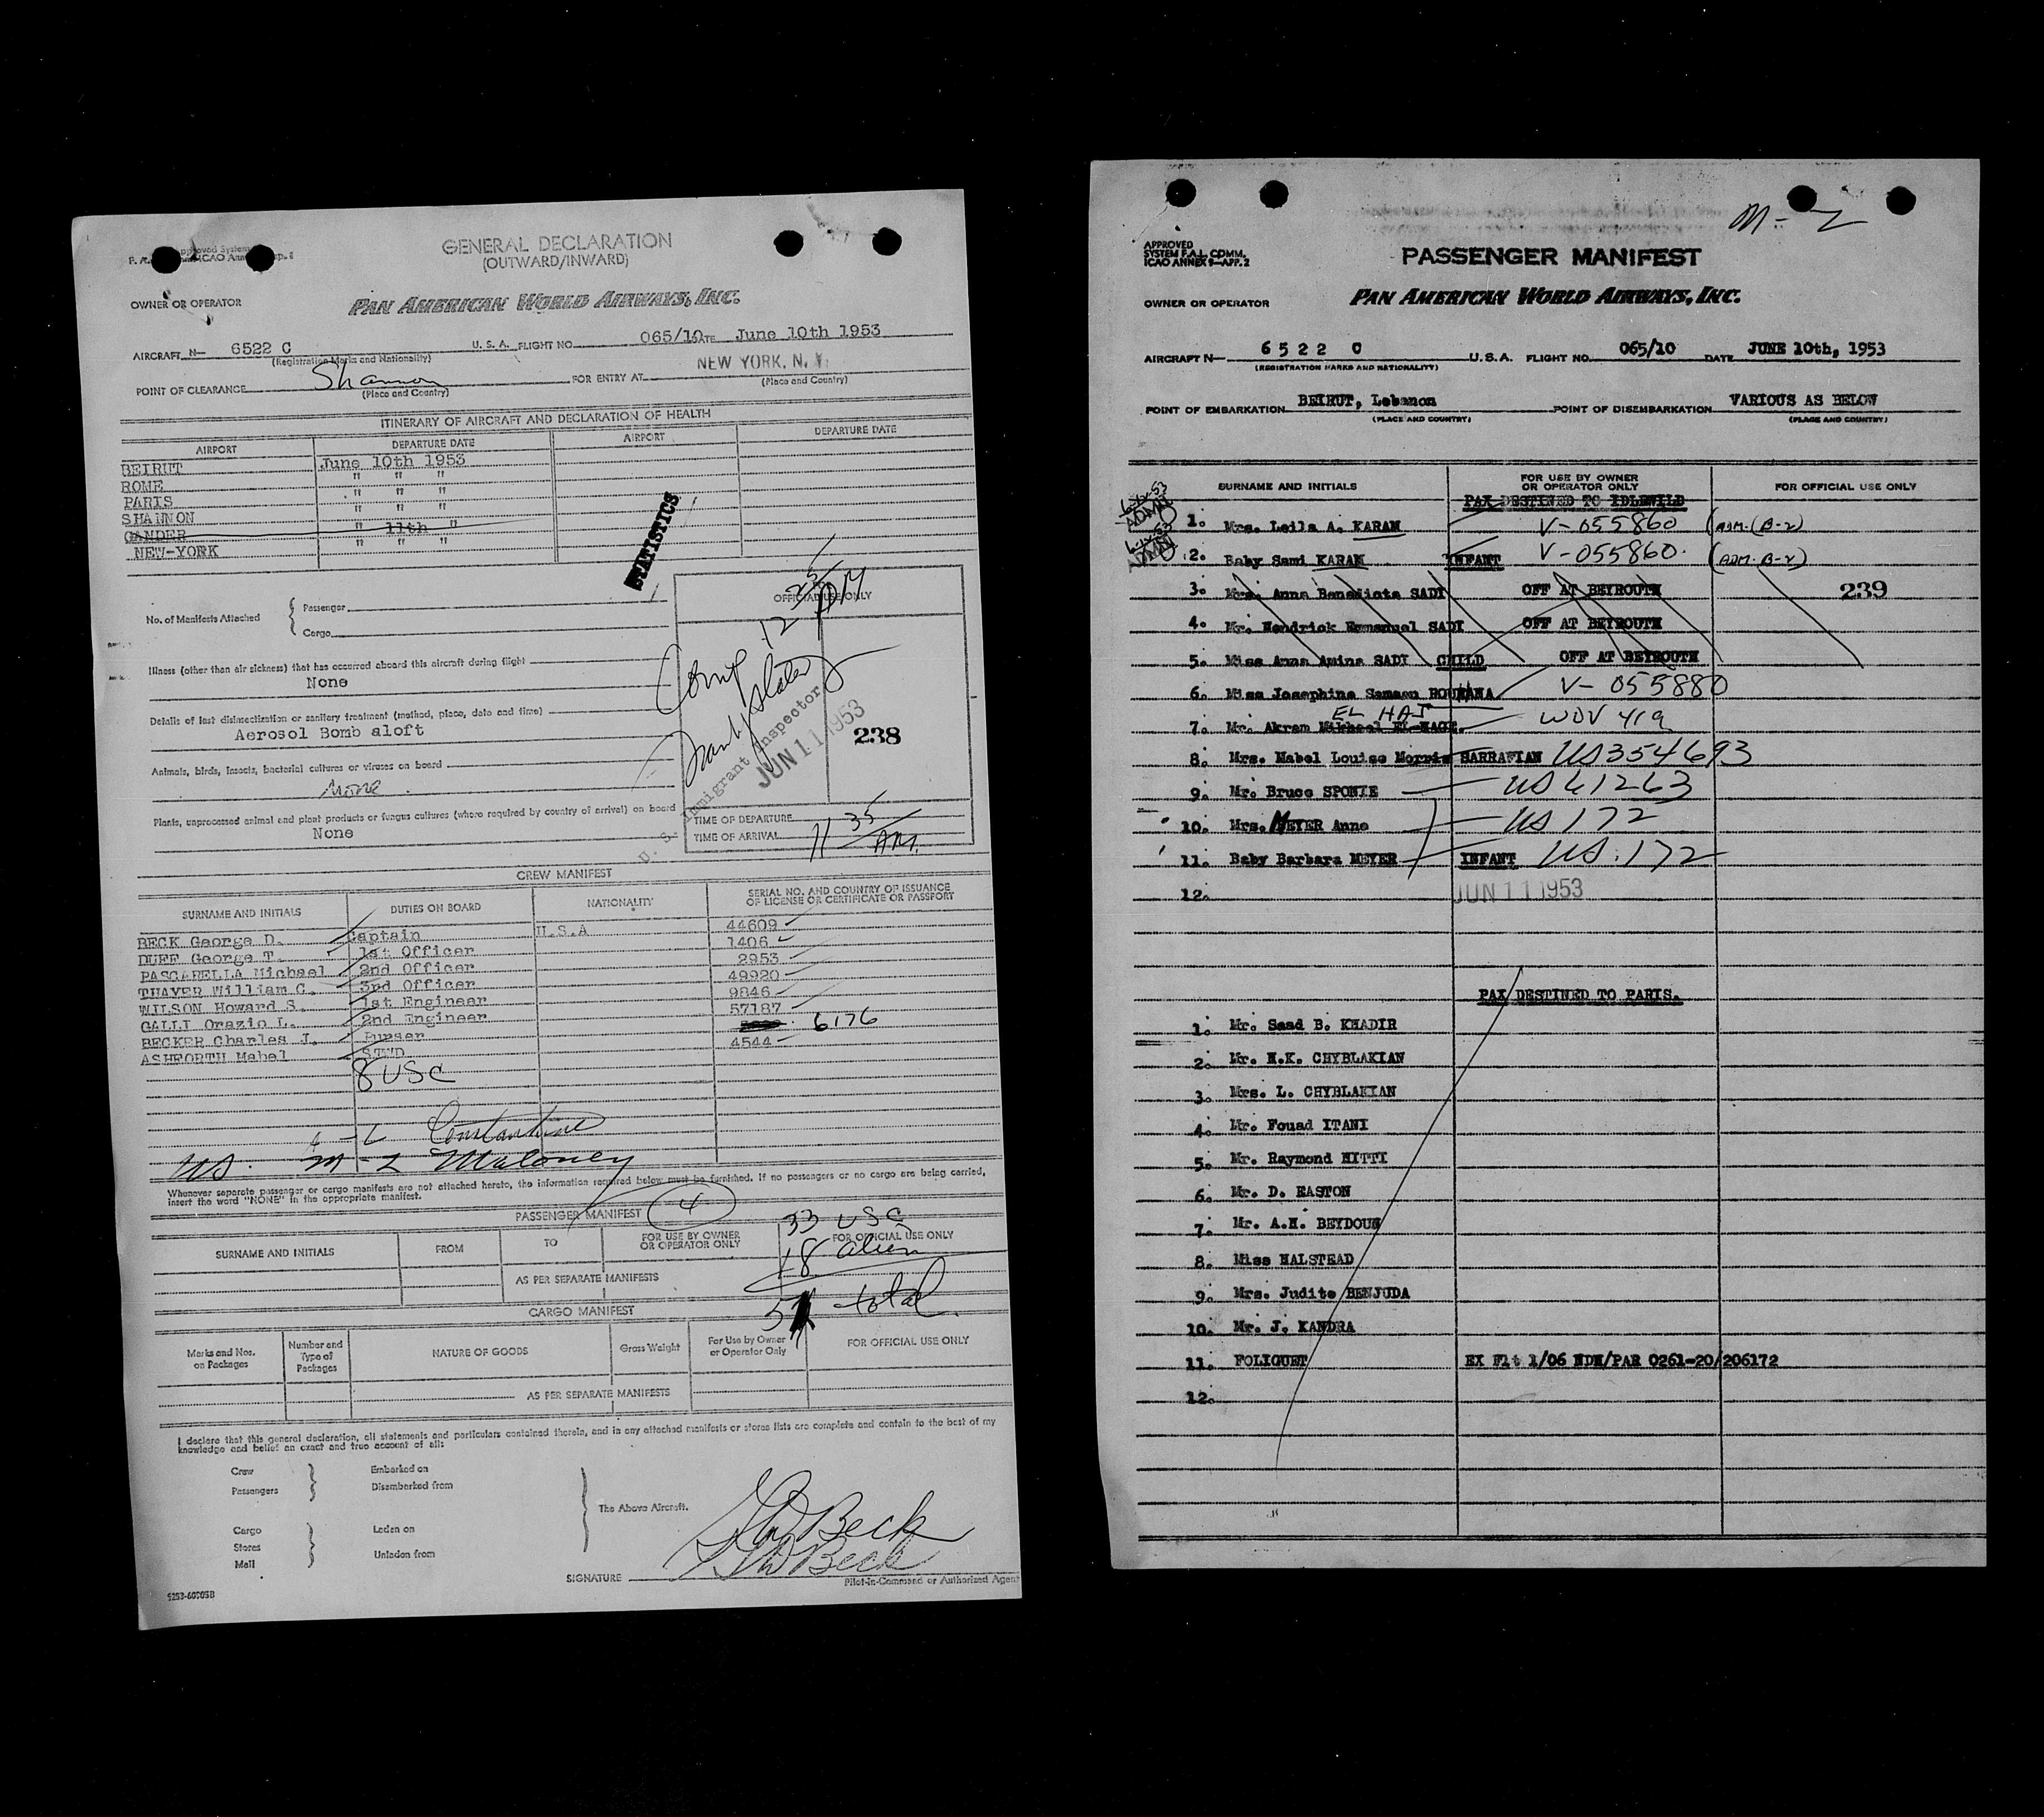 GENERAL DECLARATION
(OUTWARD/INWARD)
OWNER OR OPERATOR PAN AMERICAN WORLD AIRWAYS, INC.
AIRCRAFT N- 6522 C U.S.A. FLIGHT NO. 065/10 DATE June 10th 1953
(Registration Marks and Nationality)
NEW YORK, N.Y.
POINT OF CLEARANCE Shannon FOR ENTRY AT
(Place and Country) (Place and Country)
ITINERARY OF AIRCRAFT AND DECLARATION OF HEALTH
AIRPORT DEPARTURE DATE AIRPORT DEPARTURE DATE
BEIRUT June 10th 1953
ROME " " "
PARIS " " "
SHANNON " " "
GANDER " 11th "
NEW-YORK " " "
STATISTICS
No. of Manifests Attached { Passenger
Cargo
OFFICIAL USE ONLY
12 25 PM
Illness (other than air sickness) that has occurred aboard this aircraft during flight
None
Details of last disinsectization or sanitary treatment (method, place, date and time)
Aerosol Bomb aloft
U. S. Immigrant Inspector
JUN 11 1953
238
Animals, birds, insects, bacterial cultures or viruses on board
None.
Plants, unprocessed animal and plant products or fungus cultures (where required by country of arrival) on board
None
TIME OF DEPARTURE
TIME OF ARRIVAL 11 35 AM.
CREW MANIFEST
SURNAME AND INITIALS DUTIES ON BOARD NATIONALITY SERIAL NO. AND COUNTRY OF ISSUANCE OF LICENSE OR CERTIFICATE OR PASSPORT
BECK George D. Captain U.S.A 44609
DUFF George T. 1st Officer 1406
PASCARELLA Michael 2nd Officer 2953
THAYER William C. 3nd Officer 49920
WILSON Howard S. 1st Engineer 9846
GALLI Orazio L. 2nd Engineer 57187
BECKER Charles J. Purser 6176
ASHFORTH Mabel STWD 4544
8 USC
Constantine
US. M-Z Maloney
Whenever separate passenger or cargo manifests are not attached hereto, the information required below must be furnished. If no passengers or no cargo are being carried,
insert the word "NONE" in the appropriate manifest.
PASSENGER MANIFEST 4
33 USC
SURNAME AND INITIALS FROM TO FOR USE BY OWNER OR OPERATOR ONLY FOR OFFICIAL USE ONLY
18 alien
AS PER SEPARATE MANIFESTS
total
CARGO MANIFEST
Marks and Nos. on Packages Number and Type of Packages NATURE OF GOODS Gross Weight For Use by Owner or Operator Only FOR OFFICIAL USE ONLY
AS PER SEPARATE MANIFESTS
I declare that this general declaration, all statements and particulars contained therein, and in any attached manifests or stores lists are complete and contain to the best of my
knowledge and belief an exact and true account of all:
Crew Embarked on
Passengers Disembarked from
The Above Aircraft.
Cargo Laden on
Stores
Mail Unladen from
SIGNATURE
Pilot-in-Command or Authorized Agent
M-Z
APPROVED
SYSTEM F.A.L. COMM.
ICAO ANNEX 9-APP. 2
PASSENGER MANIFEST
OWNER OR OPERATOR PAN AMERICAN WORLD AIRWAYS, INC.
AIRCRAFT N- 6522 C U.S.A. FLIGHT NO. 065/10 DATE JUNE 10th, 1953
(REGISTRATION MARKS AND NATIONALITY)
POINT OF EMBARKATION BEIRUT, Lebanon POINT OF DISEMBARKATION VARIOUS AS BELOW
(PLACE AND COUNTRY) (PLACE AND COUNTRY)
SURNAME AND INITIALS FOR USE BY OWNER OR OPERATOR ONLY FOR OFFICIAL USE ONLY
PAX DESTINED TO IDLEWILD
1. Mrs. Leila A. KARAM V-055860 (ADM. (B-2)
2. Baby Sami KARAM INFANT V-055860. (ADM. B-2)
3. Mrs. Anna Benedicta SADI OFF AT BEYROUTH 239
4. Mr. Hendrick Emmanuel SADI OFF AT BEYROUTH
5. Miss Anna Amina SADI CHILD OFF AT BEYROUTH
6. Miss Josephine Samaan V-055880
EL HAJ
7. Mr. Akram Mikhael EL-HAGE WOV 419
8. Mrs. Mabel Louise Morris SARRAFIAN US354693
9. Mr. Bruce SPONIE US 61263
10. Mrs. MEYER Anne US 172
11. Baby Barbara MEYER INFANT US. 172
12. JUN 11 1953
PAX DESTINED TO PARIS.
1. Mr. Saad B. KHADIR
2. Mr. H.K. CHYBLAKIAN
3. Mrs. L. CHYBLAKIAN
4. Mr. Fouad ITANI
5. Mr. Raymond HITTI
6. Mr. D. EASTON
7. Mr. A.H. BEYDOUN
8. Miss HALSTEAD
9. Mrs. Judite BENJUDA
10. Mr. J. KANDRA
11. FOLIGUET EX Flt 1/06 NDH/PAR 0261-20/206172
12.